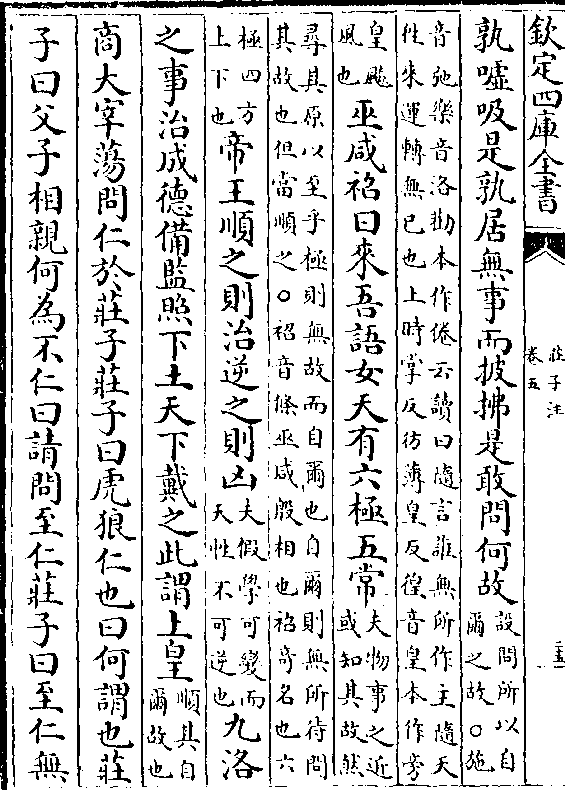 欽定四庫全書
莊子注
卷五
孰噓吸是孰居無事而披拂是敢問何故設問所以自
爾之故○施
音弛樂音洛勸本作倦云讀曰隨言誰無所作主隨天
徃來運轉無已也上時掌反彷薄皇反徨音皇本作旁
皇飈
風也
巫咸祒曰來吾語女天有六極五常夫物事之近
或知其故然
尋其原以至乎極則無故而自爾也自爾則無所待問
其故也但當順之○祒音條巫咸殷相也祒寄名也六
極四方
上下也
帝王順之則治逆之則凶夫假學可變而
天性不可逆也
九洛
之事治成德備監照下土天下戴之此謂上皇順其自
爾故也
商大宰蕩問仁於莊子莊子曰虎狼仁也曰何謂也莊
子曰父子相親何為不仁曰請問至仁莊子曰至仁無